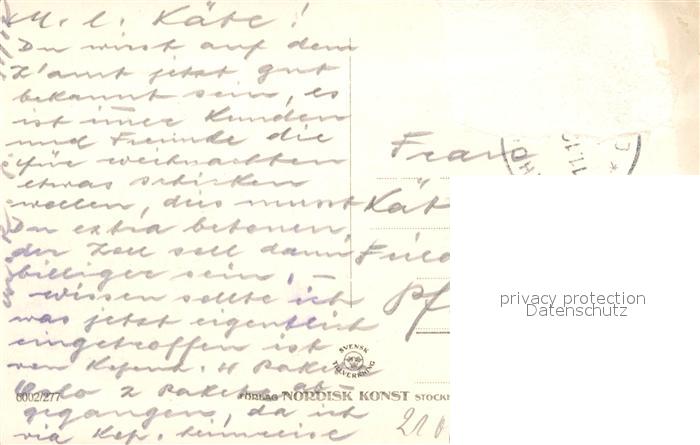 M. l. Käte!
Du wirst auf dem
Z'amt jetzt gut
bekannt sein, es
ist immer Kunden
und Freunde die
für weihnachten
etwas schicken
wollen, dies musst
Du extra betonen,
der Zoll soll dann
billiger sein, –
wissen sollte ich
was jetzt eigentlich
eingetroffen ist
von 4 Pakete
Oslo 2 Pakete ab-
gegangen, da ich
via Kop. heimreise
Frau
Kät
Pf
privacy protection
Datenschutz
SVENSK
TILLVERKNING
6002/277
FÖRLAG NORDISK KONST STOCK